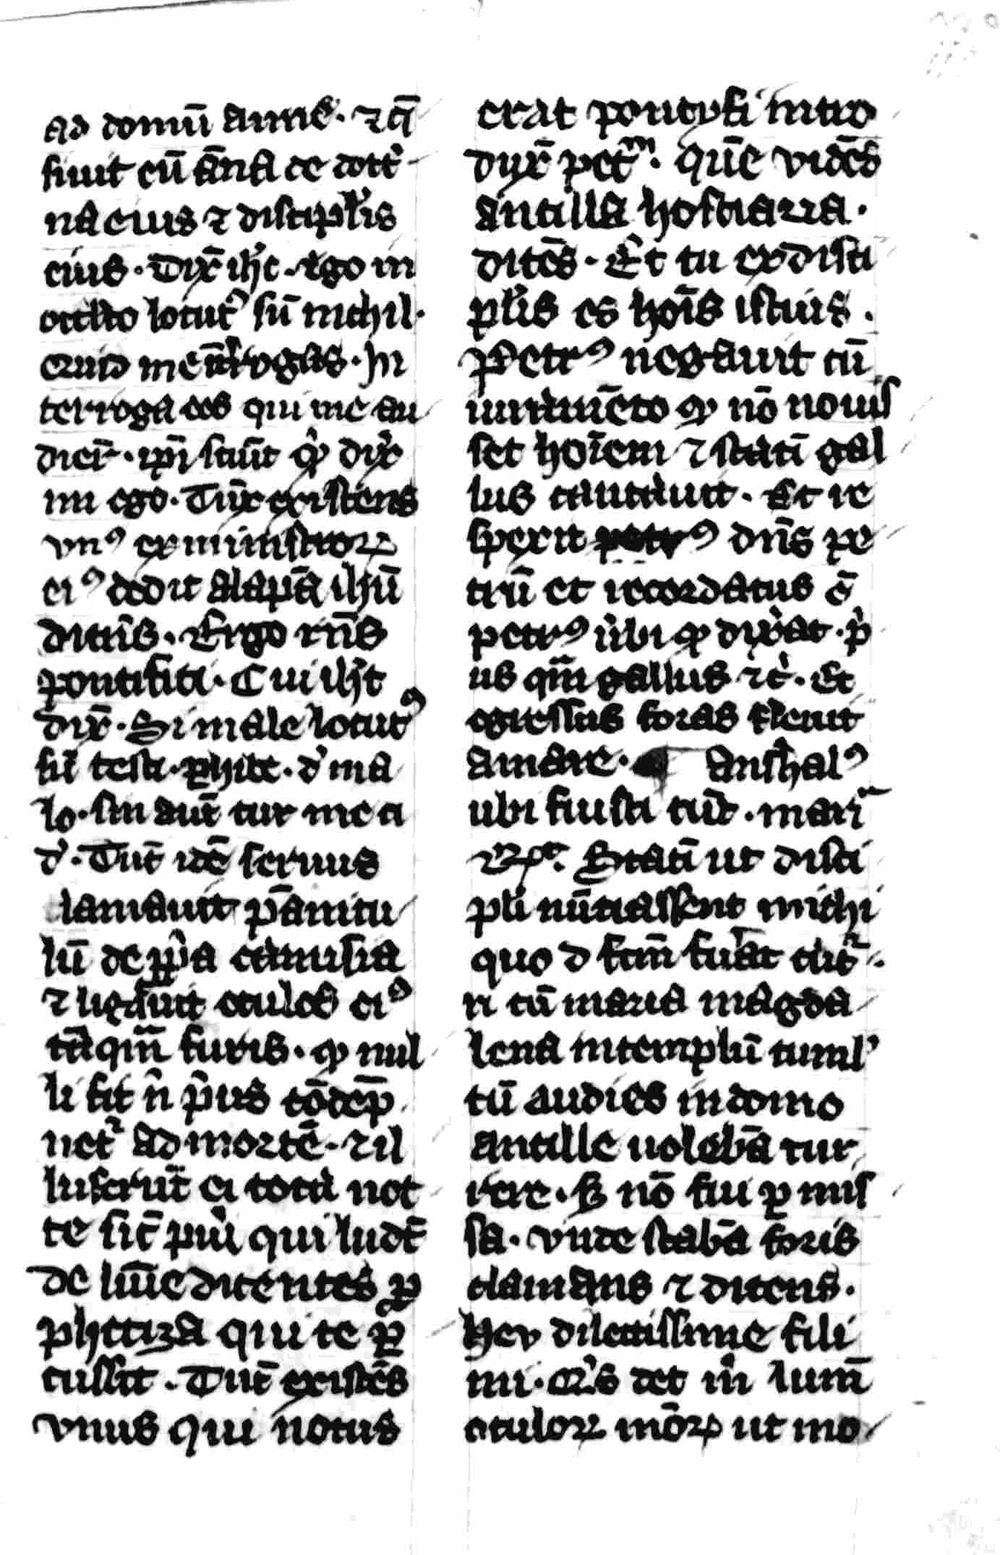 ad domū anne. ⁊ q̄
siuit eū āna de doctͥ
na eius ⁊ discipl'is
eius. Dix̄ ih'c. Ego in
occl'to locutꝰ sū nichil.
Quid me īt'rogas. In
terroga eos qui me au
dierūt. ip̄i sciūt q̓ dix̓
mi ego. Tūc existens
vnꝰ ex ministroꝝ
eiꝰ dedit alapā ih'ū
dicēs. Ergo rn̄s
pontifici. Cui ih't
dix̄. Si male locutꝰ
su' testi. ꝑhibe. d' ma
lo. sin aut̄ cur me ce
d'. Tūc idē seruus
lamauit pānicu
lū de ꝓp̓a camisia
⁊ ligauit oculos eiꝰ
tāqm̄ furis. ꝙ nul
li fit n̄ p̓us cōdēp
netͬ ad mortē. ⁊ il
luserūt ei totā noc
te sic̄ pu'i qui ludt̄
de lūīe dicentes ꝓ
phetiza qui te ꝑ
cussit. Tūc existēs
vnus qui notus
erat pontifi intro
dux̄ petͬm. quē vidēs
ancilla hostiaria.
dicēs. Et tu ex disci
pl'is es hoīs istius.
Petrꝰ negauit cū
iuramēto ꝙ nō nouis
set hoīem ⁊ statī gal
lus cantauit. Et re
spexit petrꝰ dn̄s pe
trū et recordatus ē
petrꝰ ūbi ꝙ dixͣat. p̓
us qm̄ gallus ⁊c̓. Et
egressus foras fleuit
amare. anshalꝰ
ubi fuisti tūc. mari
⁊ꝝ. Statī ut disci
pli nūtiassent michi
quod fcm̄ fuat cucͬ
ri cū maria magda
lena in templū tuml'
tū audies in domo
ancille uolebā cur
rere. sꝫ nō fui ꝑmis
sa. vnde stabā foris
clamans ⁊ dicens.
Heu dilectissime fili
mi. Q's det m̓ lum̄
oculoꝝ mōꝝ ut mo